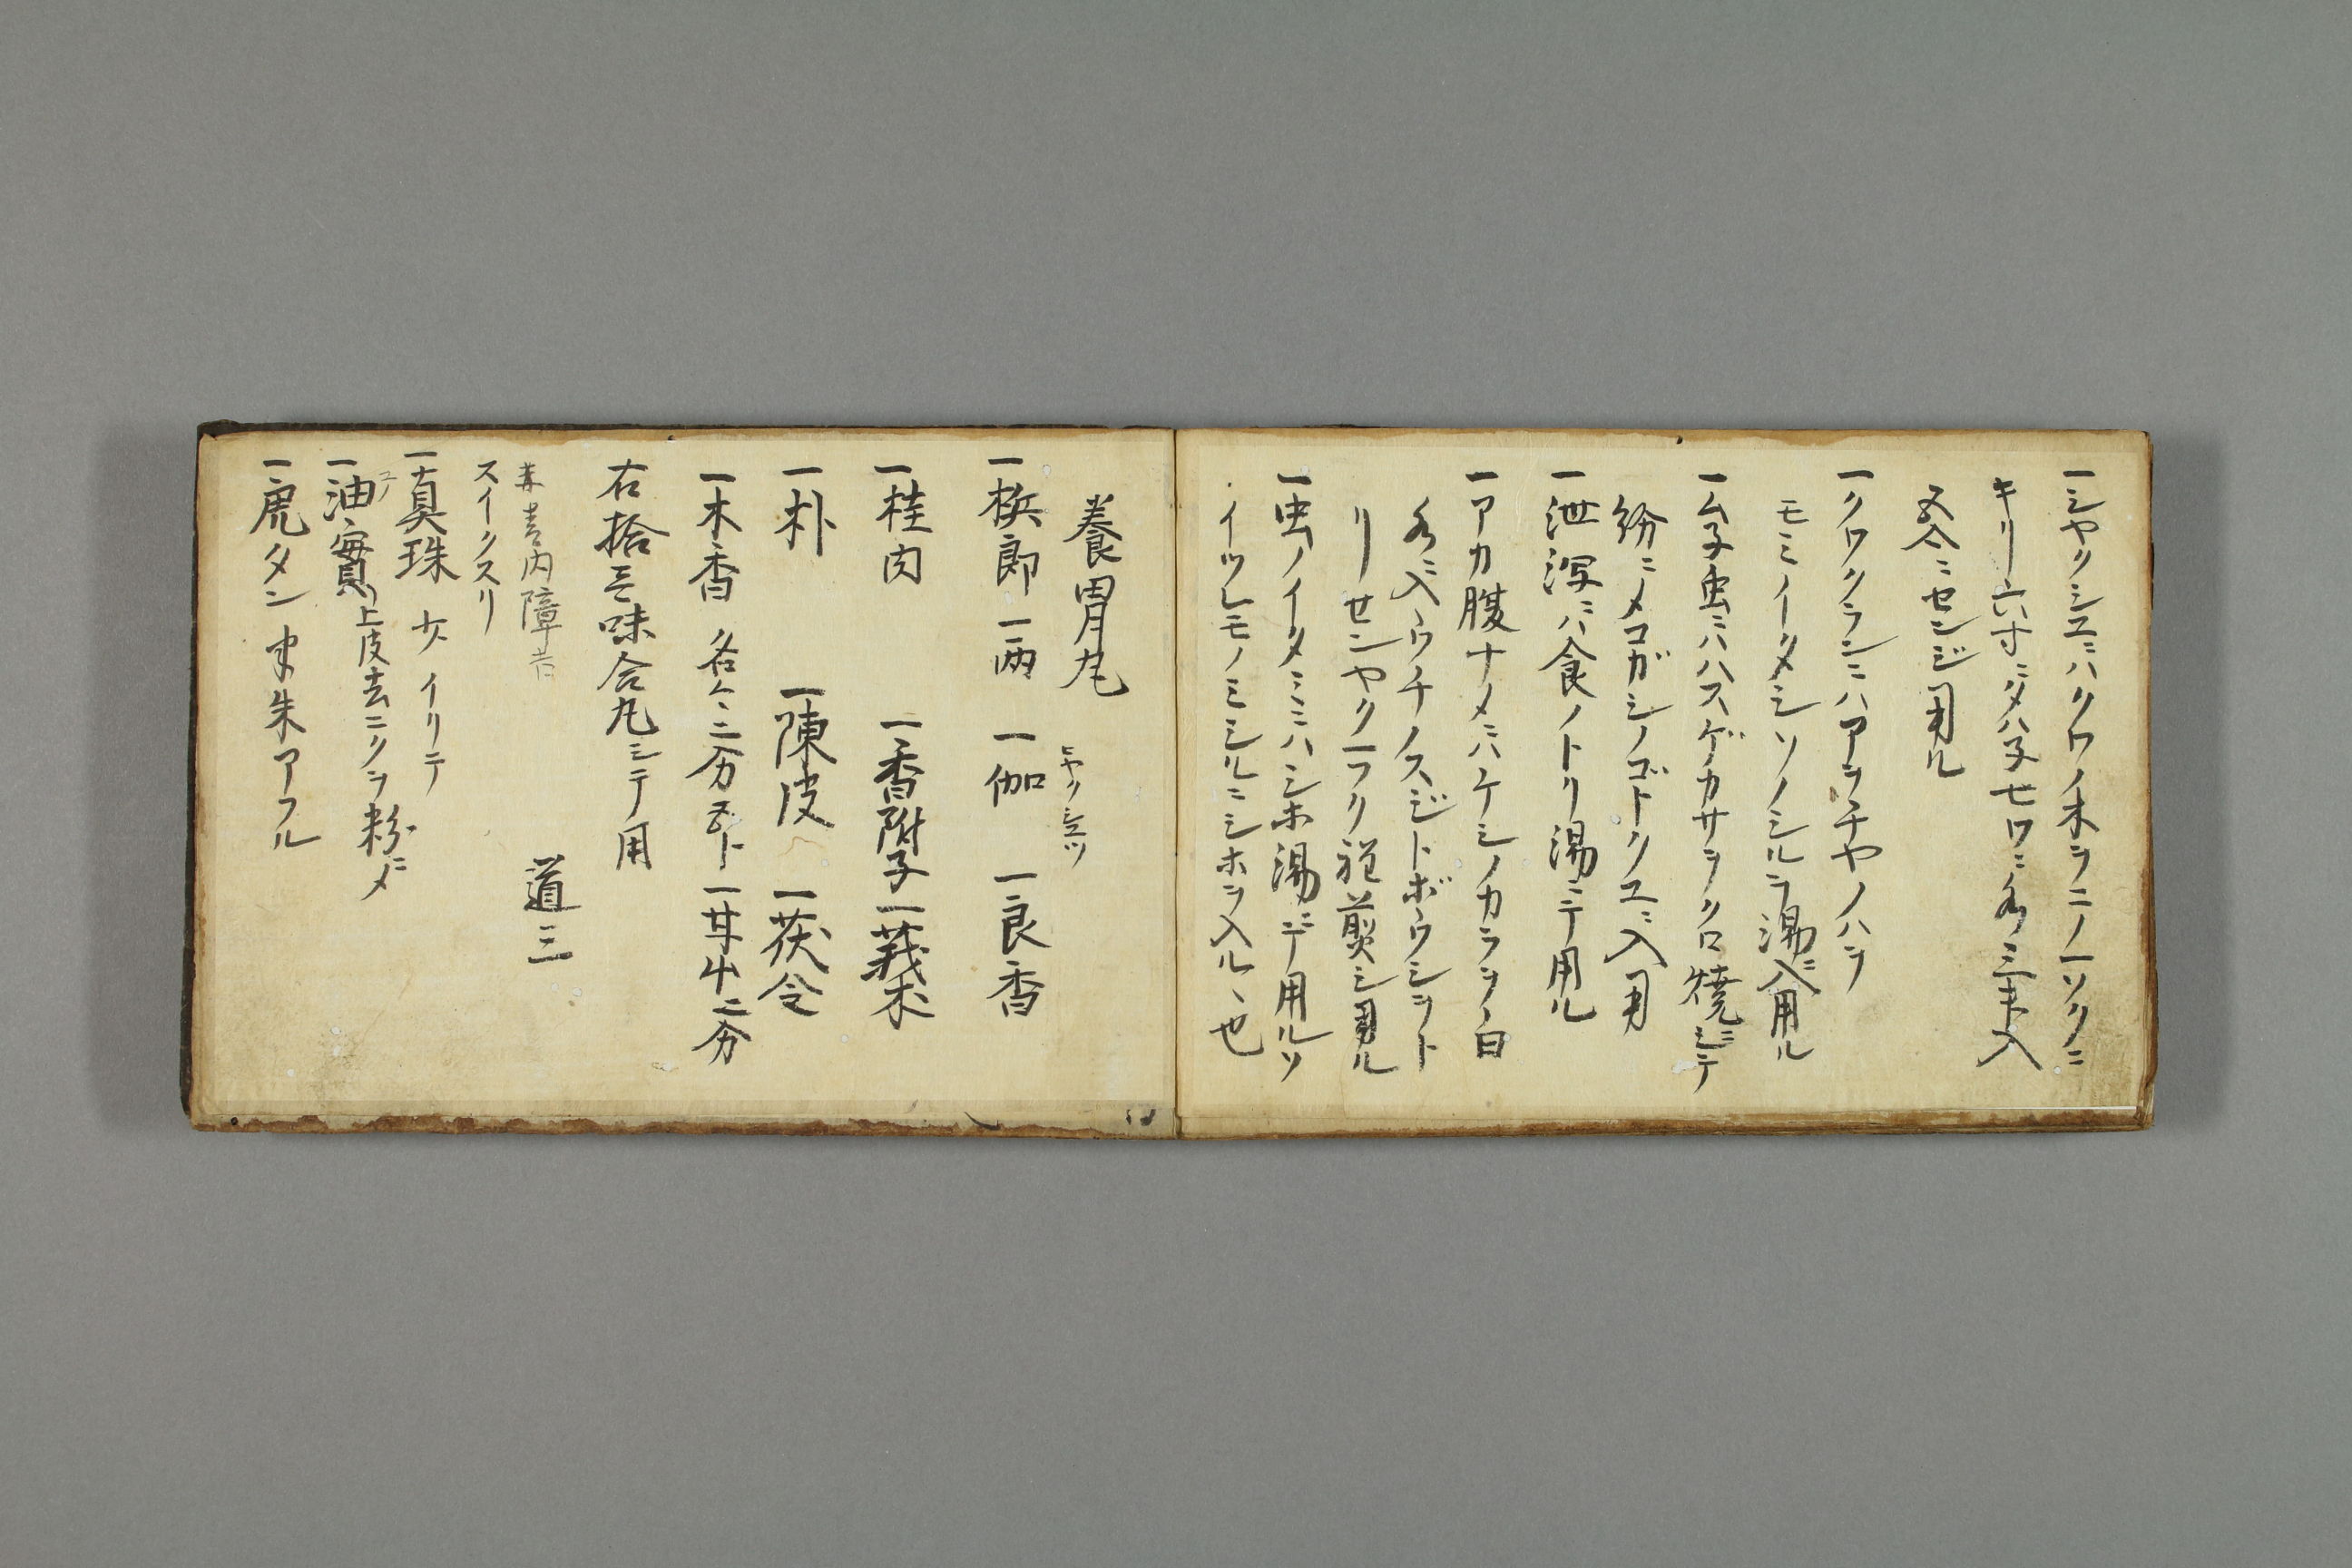 一シヤクシユニハクワノ木ヲニノ一ソクニ
キリ六寸ニタハ子七ワニ水三䒾入
一クワクランニハアヲチヤノハヲ
モミイタシソノシルヲ湯ニ入用ル
一ム子虫ニハハスゲカサヲクロ焼ニシテ
粉ニメコガシノゴトクユニ入用
一泄瀉ニハ食ノトリ湯ニテ用ル
一アカ腹ナメニハケシノカラヲ白
水ニ入ウチノスジトボウシヲト
リセンヤク一フク程煎シ用ル
一虫ノイタミニハシホ湯ニテ用ルソ
イツレモノミシルニシホヲ入ル丶也
養胃丸
一梹郎一両 一伽 一良香
一桂肉 一香附子 一莪朮
一朴 一陳皮 一茯令
一木香 各々二分五卜 一牽牛二分
右拾三味合丸シテ用
内障 道三
スイクスリ
一真珠 イリテ
一油實 上皮去ニクヲ粉ニメ
一虎タン 朱アフル